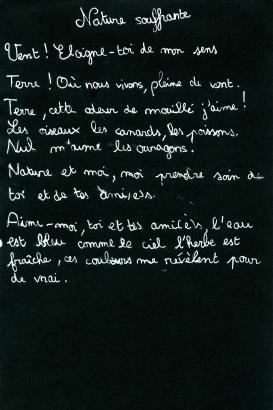 Nature souffrante
Vent ! Eloigne-toi de mon sens
Terre ! Où nous vivons, pleine de vent.
Terre, cette odeur de mouillé j'aime !
Les oiseaux les canards, les poissons.
Nul m'aime les ouragons !
Nature et moi, moi prendre soin de
toi et de tes ami(e)s.
Aime-moi, toi et tes ami(e)s, l'eau
est bleu comme le ciel l'herbe est
fraîche, ces couleurs me révèlent pour
de vrai.